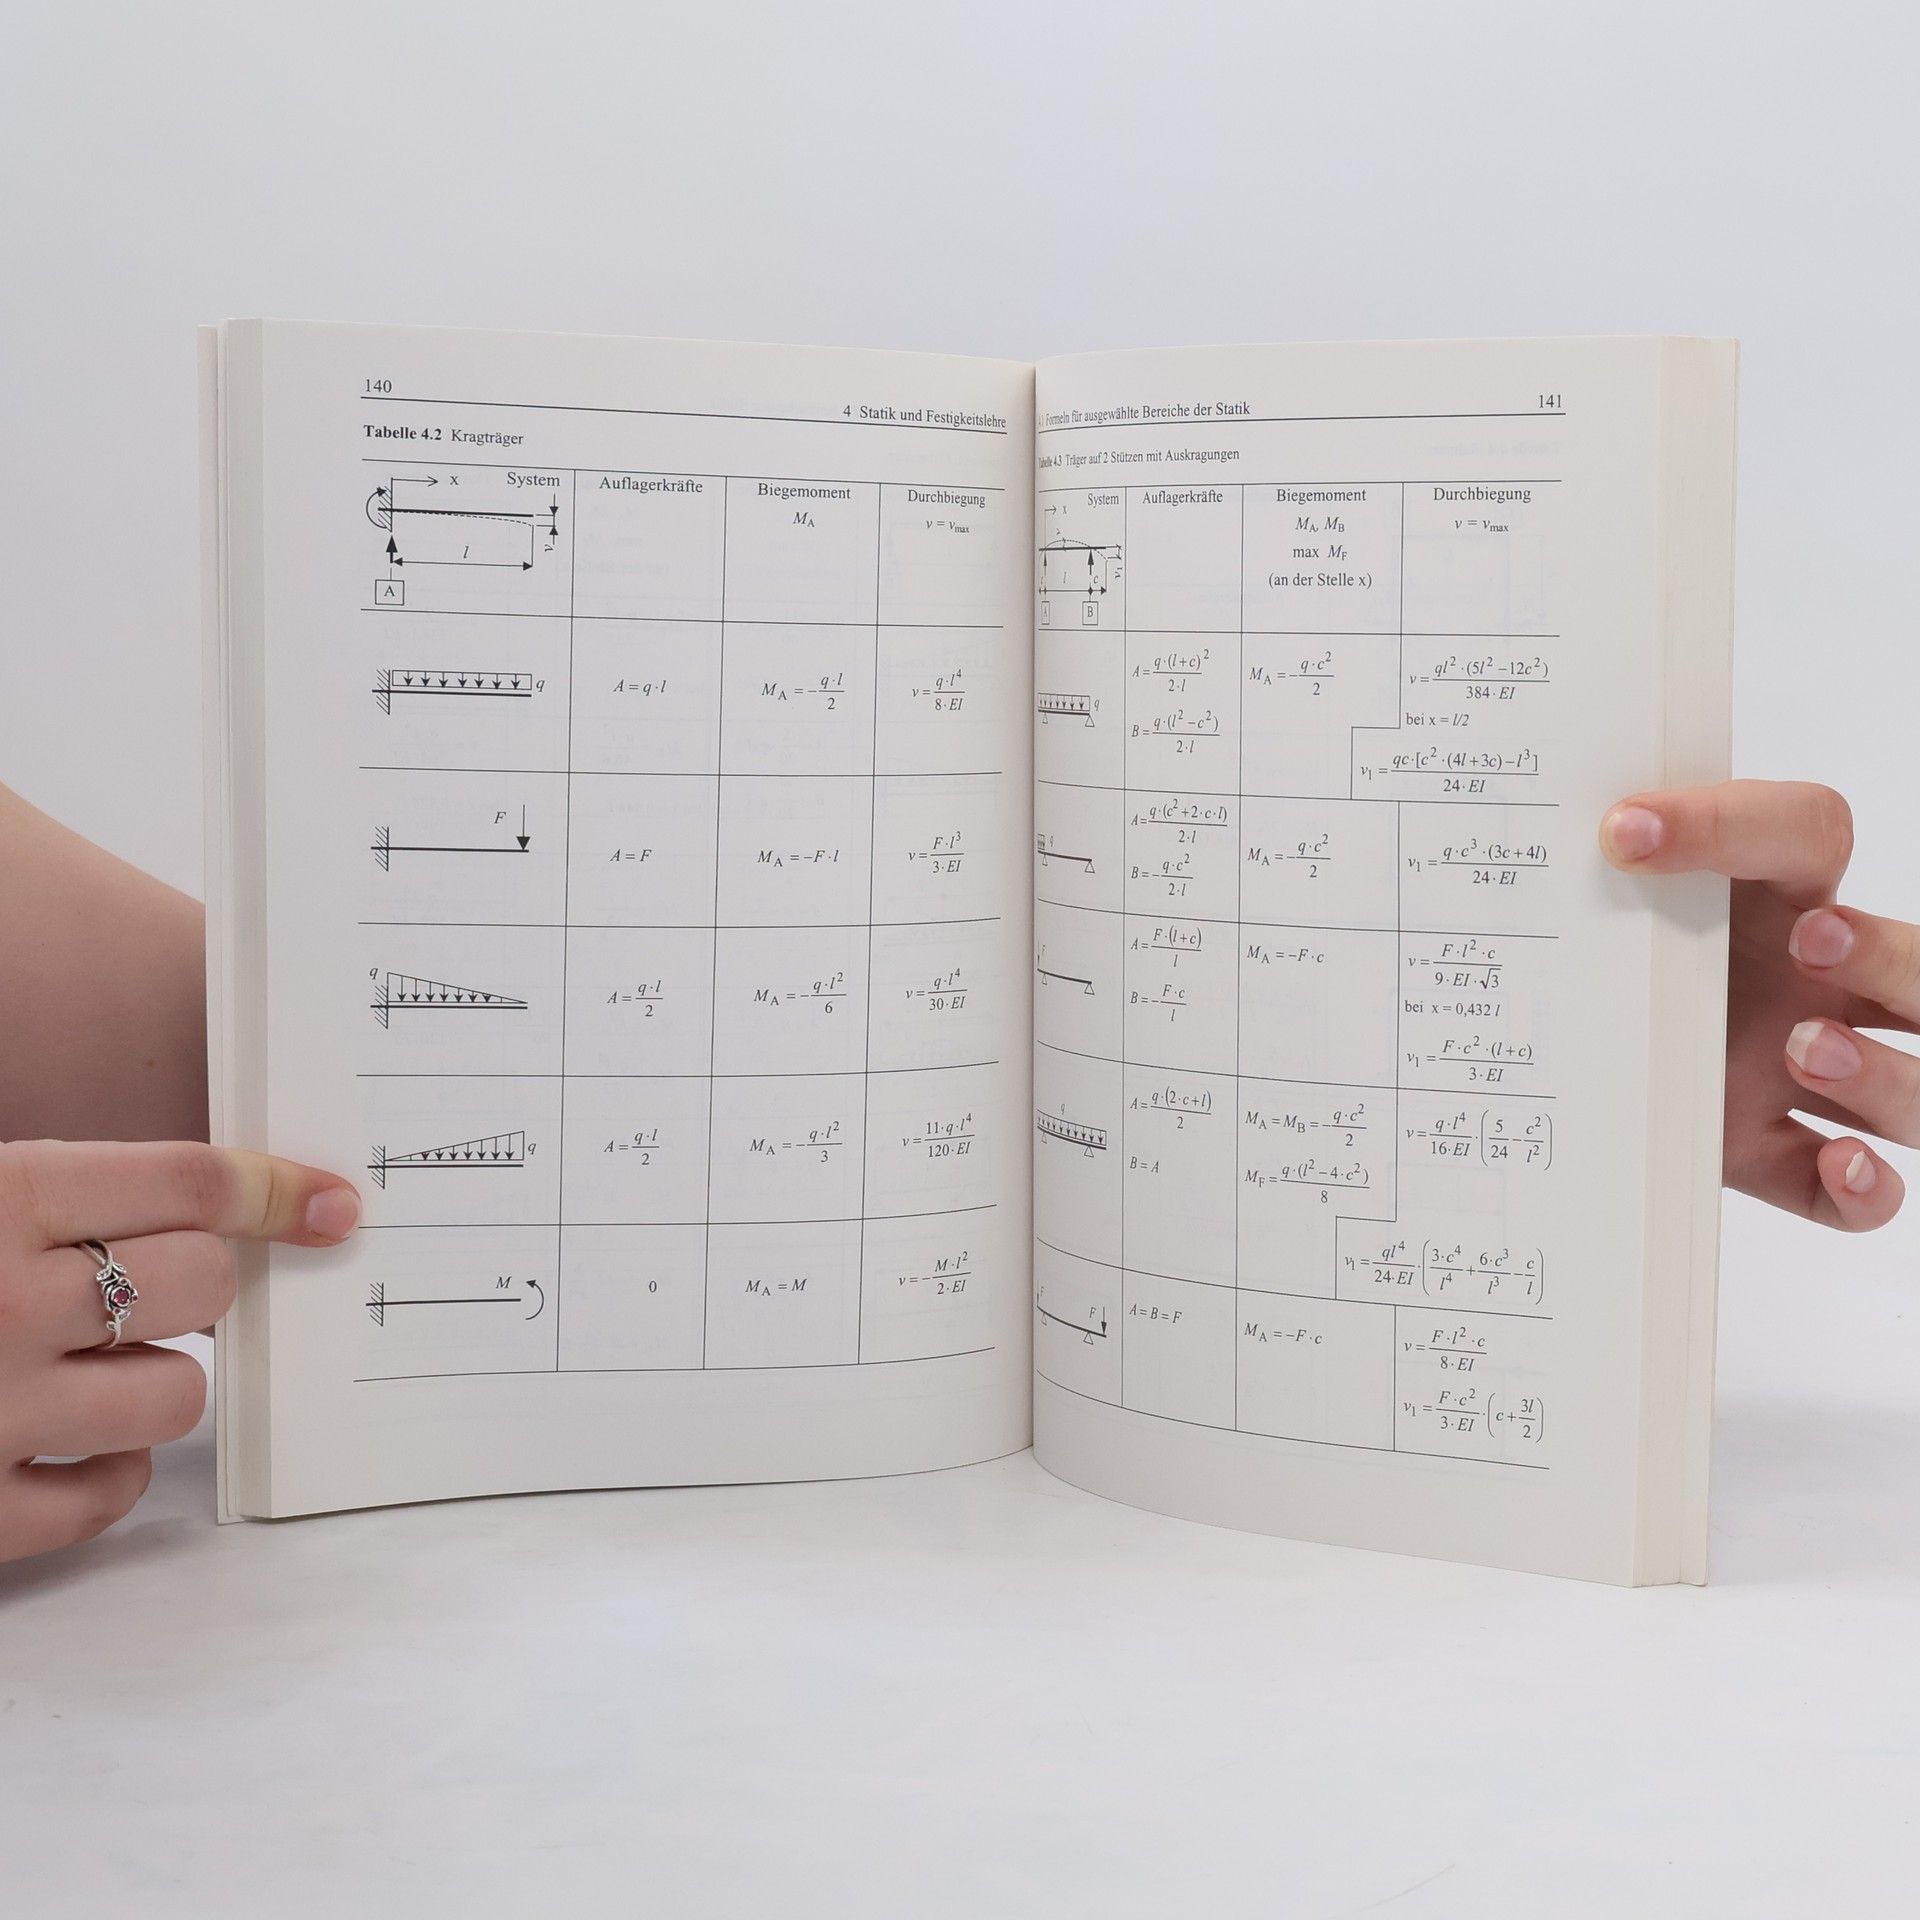 140
4 Statik und Festigkeitslehre
Tabelle 4.2 Kragträger
x System Auflagerkräfte Biegemoment Durchbiegung
M_A v = v_max
v
l
A
q A = q·l M_A = −q·l/2 v = q·l⁴/8·EI
F A = F M_A = −F·l v = F·l³/3·EI
q A = q·l/2 M_A = −q·l²/6 v = q·l⁴/30·EI
q A = q·l/2 M_A = −q·l²/3 v = 11·q·l⁴/120·EI
M 0 M_A = M v = −M·l²/2·EI
141
Formeln für ausgewählte Bereiche der Statik
Tabelle 4.3 Träger auf 2 Stützen mit Auskragungen
System Auflagerkräfte Biegemoment Durchbiegung
x M_A, M_B v = v_max
max M_F
(an der Stelle x)
l c v₁
A B
q A = q·(l+c)²/2·l M_A = −q·c²/2 v = ql²·(5l²−12c²)/384·EI
bei x = l/2
B = q·(l²−c²)/2·l
v₁ = qc·[c²·(4l+3c)−l³]/24·EI
q A = q·(c²+2·c·l)/2·l M_A = −q·c²/2 v₁ = q·c³·(3c+4l)/24·EI
B = −q·c²/2·l
F A = F·(l+c)/l M_A = −F·c v = F·l²·c/9·EI·√3
B = −F·c/l bei x = 0,432 l
v₁ = F·c²·(l+c)/3·EI
q A = q·(2·c+l)/2 M_A = M_B = −q·c²/2 v = q·l⁴/16·EI·(5/24−c²/l²)
B = A M_F = q·(l²−4·c²)/8
v₁ = ql⁴/24·EI·(3·c⁴/l⁴+6·c³/l³−c/l)
F F A = B = F M_A = −F·c v = F·l²·c/8·EI
v₁ = F·c²/3·EI·(c+3l/2)